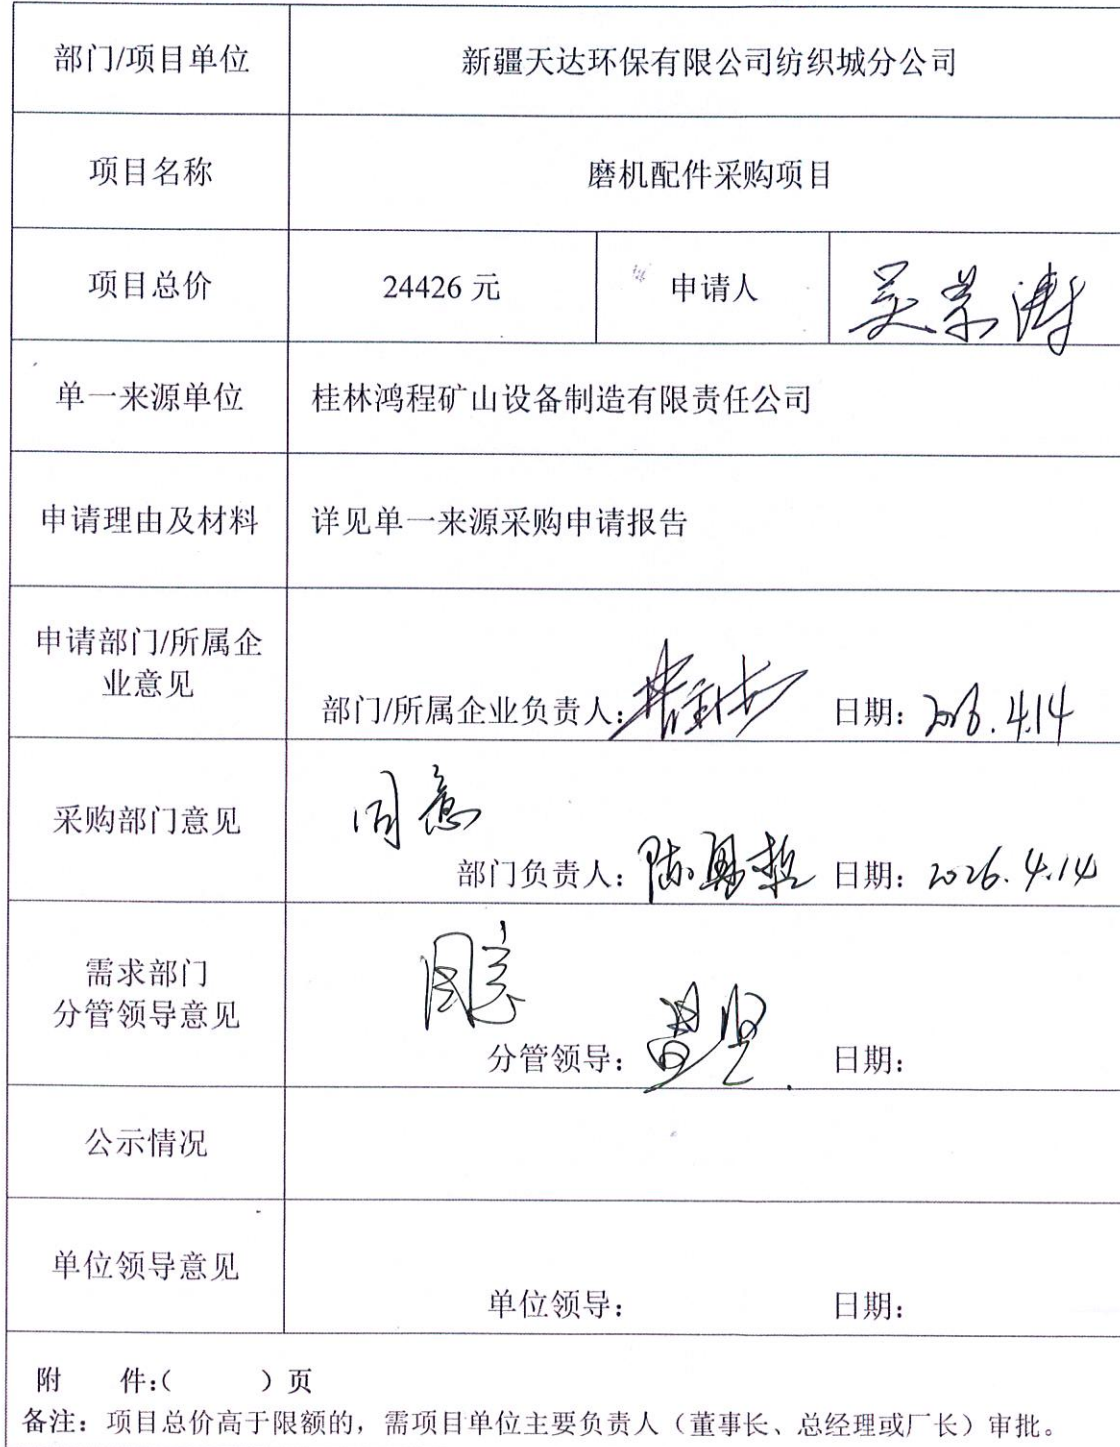 部门/项目单位 新疆天达环保有限公司纺织城分公司
项目名称 磨机配件采购项目
项目总价 24426 元 申请人
单一来源单位 桂林鸿程矿山设备制造有限责任公司
申请理由及材料 详见单一来源采购申请报告
申请部门/所属企
业意见
部门/所属企业负责人: 日期: 4.14
采购部门意见
同意
部门负责人: 日期: 2026.4.14
需求部门
分管领导意见
同意
分管领导: 日期:
公示情况
单位领导意见
单位领导: 日期:
附 件:( )页
备注:项目总价高于限额的,需项目单位主要负责人(董事长、总经理或厂长)审批。